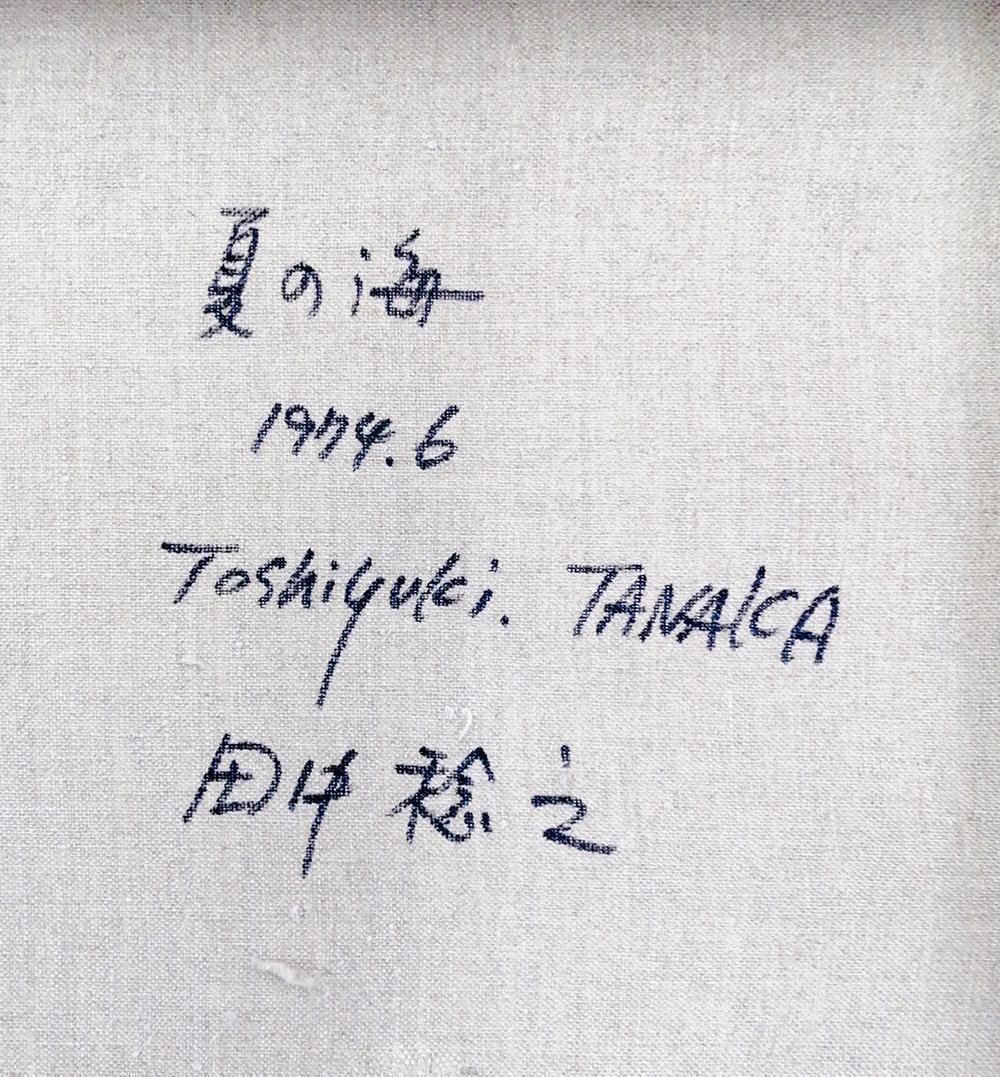 夏の海
1974.6
Toshiyuki. TANAKA
田中稔之